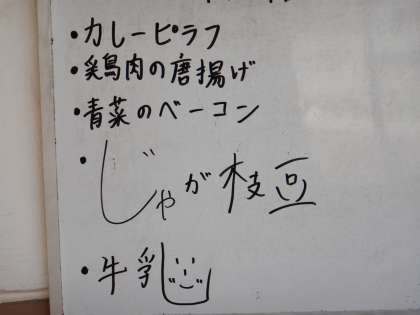 ・カレーピラフ
・鶏肉の唐揚げ
・青菜のベーコン
・じゃが枝豆
・牛乳